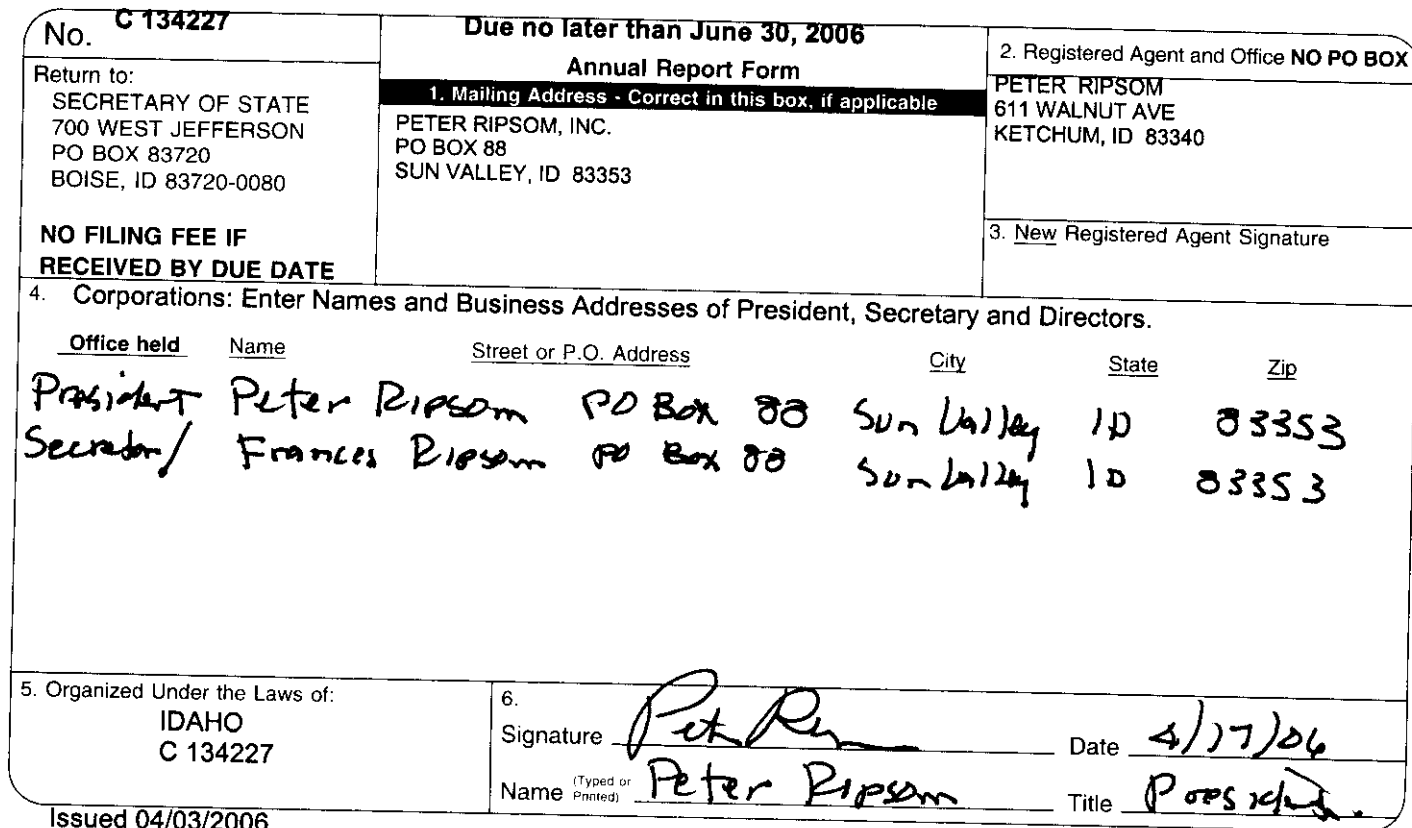 No. C 134227
Return to:
SECRETARY OF STATE
700 WEST JEFFERSON
PO BOX 83720
BOISE, ID 83720-0080
NO FILING FEE IF
RECEIVED BY DUE DATE
Due no later than June 30, 2006
Annual Report Form
1. Mailing Address - Correct in this box, if applicable
PETER RIPSOM, INC.
PO BOX 88
SUN VALLEY, ID 83353
2. Registered Agent and Office NO PO BOX
PETER RIPSOM
611 WALNUT AVE
KETCHUM, ID 83340
3. New Registered Agent Signature
4. Corporations: Enter Names and Business Addresses of President, Secretary and Directors.
Office held Name Street or P.O. Address City State Zip
President Peter Ripsom PO Box 88 Sun Valley ID 83353
Secretary Frances Ripsom PO Box 88 Sun Valley ID 83353
5. Organized Under the Laws of:
IDAHO
C 134227
6.
Signature Date 4/17/06
Name (Typed or Printed) Peter Ripsom Title President.
Issued 04/03/2006